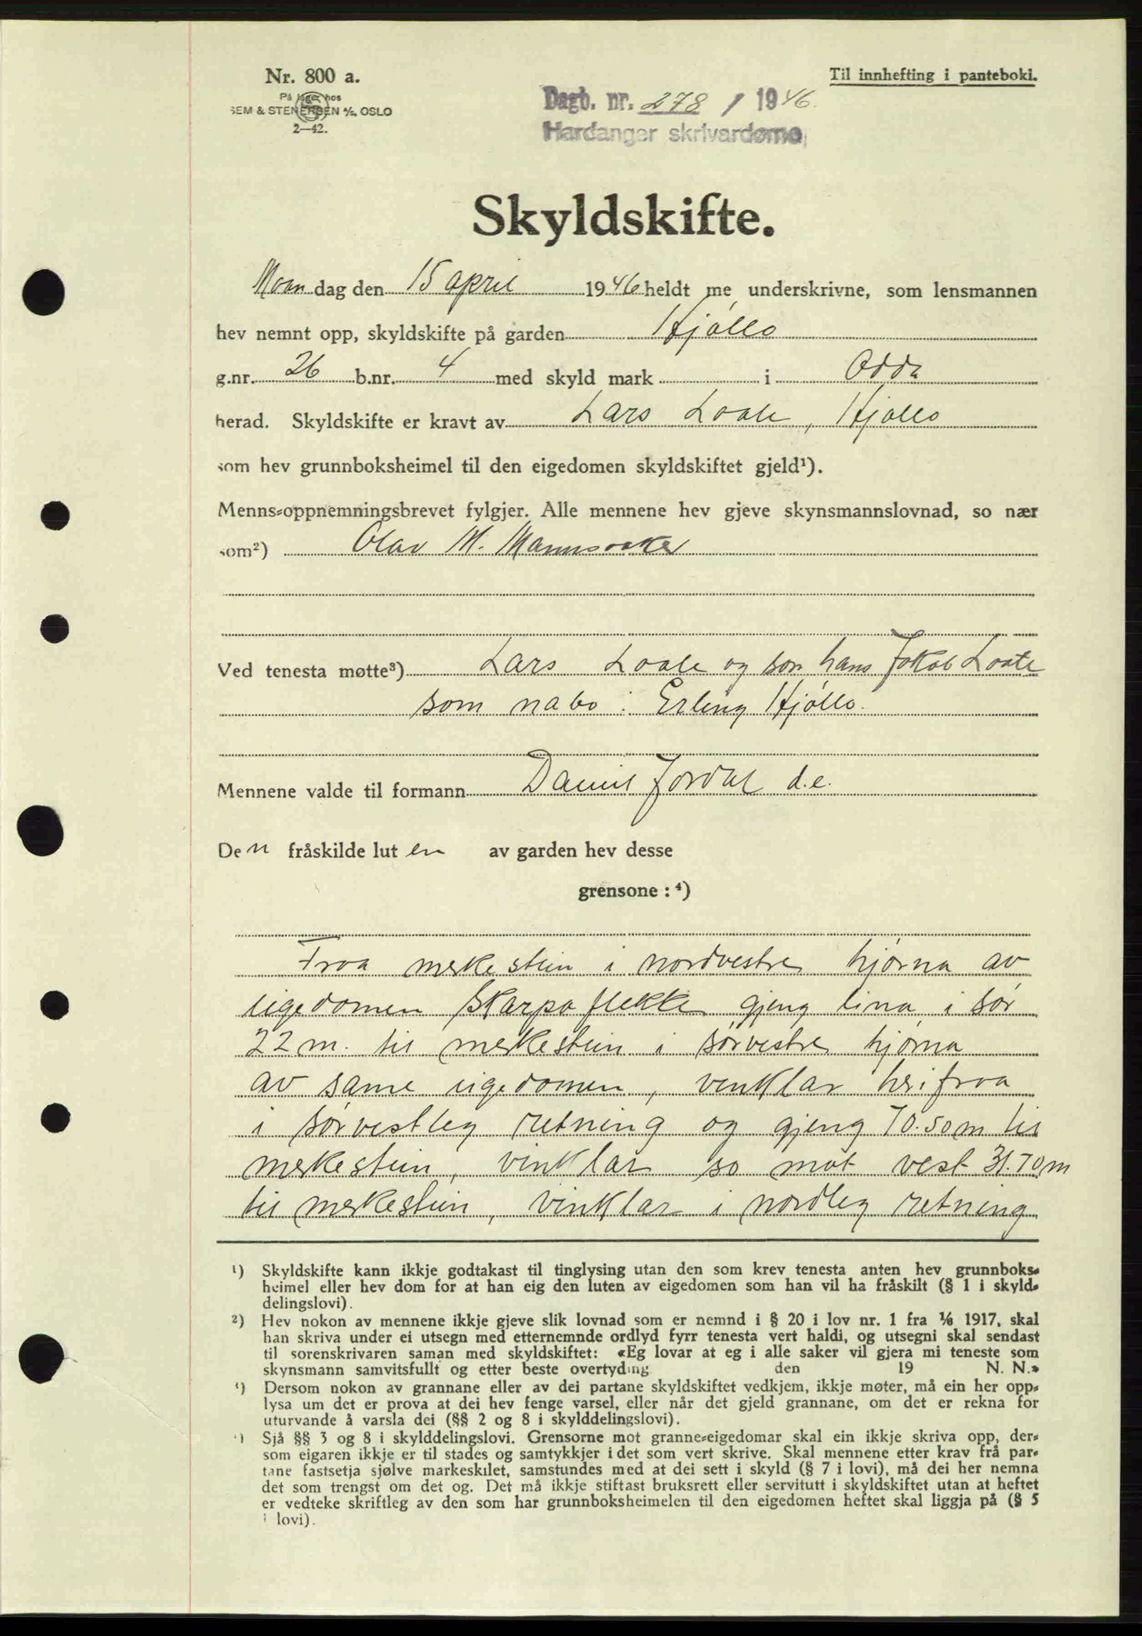 Nr. 800 a.
På lager hos
SEM & STENERSEN A/S, OSLO
2—42.
Til innhefting i panteboki.
Dagb. nr. 278 / 1946.
Hardanger skrivardøme
Skyldskifte.
Moan dag den 15 april 1946 heldt me underskrivne, som lensmannen
hev nemnt opp, skyldskifte på garden Hjøllo
g.nr. 26 b.nr. 4 med skyld mark i Odda
herad. Skyldskifte er kravt av Lars Loate, Hjøllo
som hev grunnboksheimel til den eigedomen skyldskiftet gjeld¹).
Menns-oppnemningsbrevet fylgjer. Alle mennene hev gjeve skynsmannslovnad, so nær
som²) Olav M. Mannsaaker
Ved tenesta møtte³) Lars Loate og son hans Jakob Loate
som nabo: Erling Hjøllo.
Mennene valde til formann Daniel Jordal d.e.
Den fråskilde luten av garden hev desse
grensone : ⁴)
Fraa merkestein i nordvestre hjørna av
eigedomen Skarpaflekke gjeng lina i sør
22 m. til merkestein i sørvestre hjørna
av same eigedomen, vinklar herifraa
i sørvestleg retning og gjeng 70.50 m til
merkestein, vinklar so mot vest 31.70 m
til merkestein, vinklar i nordleg retning
¹) Skyldskifte kann ikkje godtakast til tinglysing utan den som krev tenesta anten hev grunnboks-
heimel eller hev dom for at han eig den luten av eigedomen som han vil ha fråskilt (§ 1 i skyld-
delingslovi).
²) Hev nokon av mennene ikkje gjeve slik lovnad som er nemnd i § 20 i lov nr. 1 fra 1/6 1917, skal
han skriva under ei utsegn med etternemnde ordlyd fyrr tenesta vert haldi, og utsegni skal sendast
til sorenskrivaren saman med skyldskiftet: «Eg lovar at eg i alle saker vil gjera mi teneste som
skynsmann samvitsfullt og etter beste overtyding. den 19 N. N.»
³) Dersom nokon av grannane eller av dei partane skyldskiftet vedkjem, ikkje møter, må ein her opp-
lysa um det er prova at dei hev fenge varsel, eller når det gjeld grannane, om det er rekna for
uturvande å varsla dei (§§ 2 og 8 i skylddelingslovi).
⁴) Sjå §§ 3 og 8 i skylddelingslovi. Grensorne mot granne-eigedomar skal ein ikkje skriva opp, der-
som eigaren ikkje er til stades og samtykkjer i det som vert skrive. Skal mennene etter krav frå par-
tane fastsetja sjølve markeskilet, samstundes med at dei sett i skyld (§ 7 i lovi), må dei her nemna
det som trengst om det og. Det må ikkje stiftast bruksrett eller servitutt i skyldskiftet utan at heftet
er vedteke skriftleg av den som har grunnboksheimelen til den eigedomen heftet skal liggja på (§ 5
i lovi).